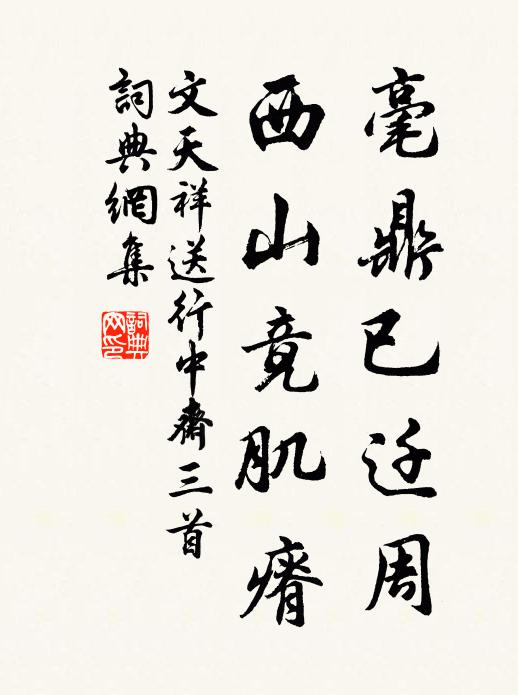 毫鼎已迁周
西山竟肌瘠
文天祥送行中齋三首
詞典網集
詞典
网印